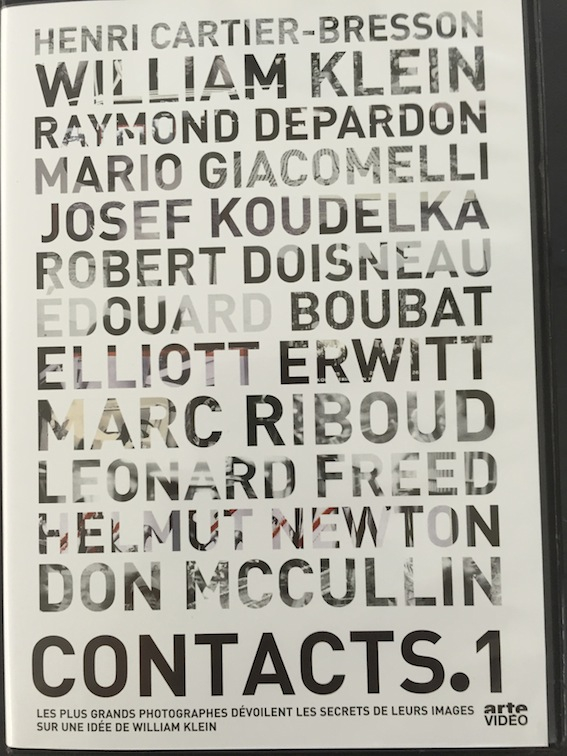 HENRI CARTIER-BRESSON
WILLIAM KLEIN
RAYMOND DEPARDON
MARIO GIACOMELLI
JOSEF KOUDELKA
ROBERT DOISNEAU
ÉDOUARD BOUBAT
ELLIOTT ERWITT
MARC RIBOUD
LEONARD FREED
HELMUT NEWTON
DON MCCULLIN
CONTACTS.1
LES PLUS GRANDS PHOTOGRAPHES DÉVOILENT LES SECRETS DE LEURS IMAGES
SUR UNE IDÉE DE WILLIAM KLEIN
arte
VIDÉO